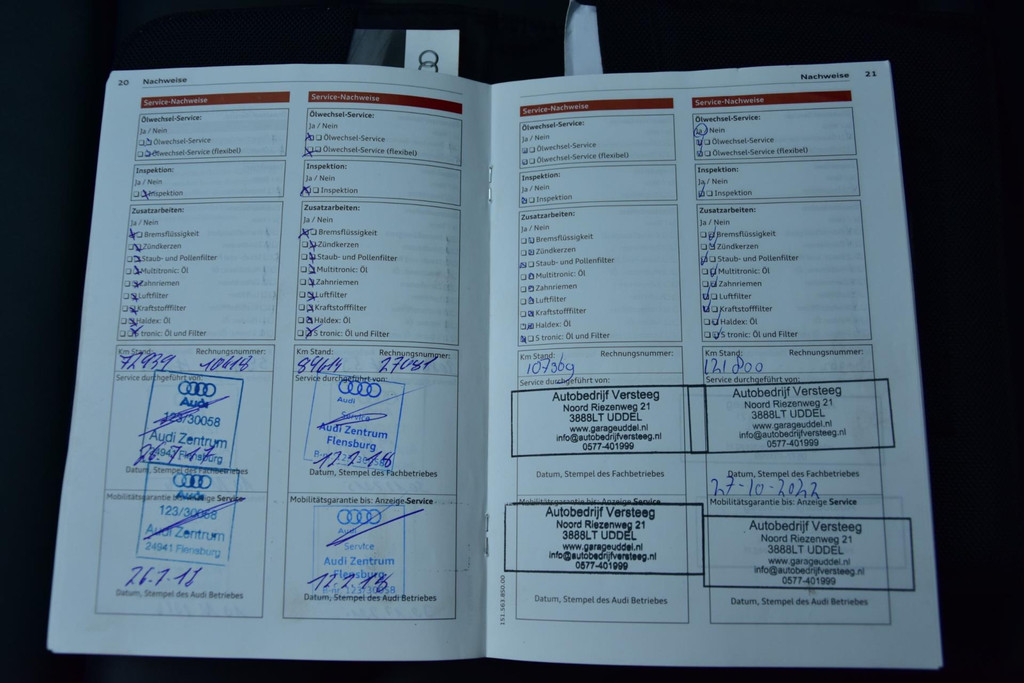 20 Nachweise
Service-Nachweise
Ölwechsel-Service:
Ja / Nein
Ölwechsel-Service
Ölwechsel-Service (flexibel)
Inspektion:
Ja / Nein
Inspektion
Zusatzarbeiten:
Ja / Nein
Bremsflüssigkeit
Zündkerzen
Staub- und Pollenfilter
Multitronic: Öl
Zahnriemen
Luftfilter
Kraftstofffilter
Haldex: Öl
S tronic: Öl und Filter
Km Stand: Rechnungsnummer:
72939 10618
Service durchgeführt von:
Audi
123/30058
Audi Zentrum
24941 Flensburg
26.7.17
Datum, Stempel des Fachbetriebes
Mobilitätsgarantie bis: Anzeige Service
Audi
123/30058
Audi Zentrum
24941 Flensburg
Datum, Stempel des Audi Betriebes
Service-Nachweise
Ölwechsel-Service:
Ja / Nein
Ölwechsel-Service
Ölwechsel-Service (flexibel)
Inspektion:
Ja / Nein
Inspektion
Zusatzarbeiten:
Ja / Nein
Bremsflüssigkeit
Zündkerzen
Staub- und Pollenfilter
Multitronic: Öl
Zahnriemen
Luftfilter
Kraftstofffilter
Haldex: Öl
S tronic: Öl und Filter
Km Stand: Rechnungsnummer:
89614 27081
Service durchgeführt von:
Audi
Service
Audi Zentrum
Flensburg
12.2.18
Datum, Stempel des Fachbetriebes
Mobilitätsgarantie bis: Anzeige Service
Audi
Service
Audi Zentrum
Flensburg
12.2.18
Datum, Stempel des Audi Betriebes
Nachweise 21
Service-Nachweise
Ölwechsel-Service:
Ja / Nein
Ölwechsel-Service
Ölwechsel-Service (flexibel)
Inspektion:
Ja / Nein
Inspektion
Zusatzarbeiten:
Ja / Nein
Bremsflüssigkeit
Zündkerzen
Staub- und Pollenfilter
Multitronic: Öl
Zahnriemen
Luftfilter
Kraftstofffilter
Haldex: Öl
S tronic: Öl und Filter
Km Stand: Rechnungsnummer:
107369
Service durchgeführt von:
Autobedrijf Versteeg
Noord Riezenweg 21
3888LT UDDEL
www.garageuddel.nl
info@autobedrijfversteeg.nl
0577-401999
Datum, Stempel des Fachbetriebes
Mobilitätsgarantie bis: Anzeige Service
Autobedrijf Versteeg
Noord Riezenweg 21
3888LT UDDEL
www.garageuddel.nl
info@autobedrijfversteeg.nl
0577-401999
Datum, Stempel des Audi Betriebes
151.563.850.00
Service-Nachweise
Ölwechsel-Service:
Ja / Nein
Ölwechsel-Service
Ölwechsel-Service (flexibel)
Inspektion:
Ja / Nein
Inspektion
Zusatzarbeiten:
Ja / Nein
Bremsflüssigkeit
Zündkerzen
Staub- und Pollenfilter
Multitronic: Öl
Zahnriemen
Luftfilter
Kraftstofffilter
Haldex: Öl
S tronic: Öl und Filter
Km Stand: Rechnungsnummer:
121800
Service durchgeführt von:
Autobedrijf Versteeg
Noord Riezenweg 21
3888LT UDDEL
www.garageuddel.nl
info@autobedrijfversteeg.nl
0577-401999
Datum, Stempel des Fachbetriebes
27-10-2022
Mobilitätsgarantie bis: Anzeige Service
Autobedrijf Versteeg
Noord Riezenweg 21
3888LT UDDEL
www.garageuddel.nl
info@autobedrijfversteeg.nl
0577-401999
Datum, Stempel des Audi Betriebes